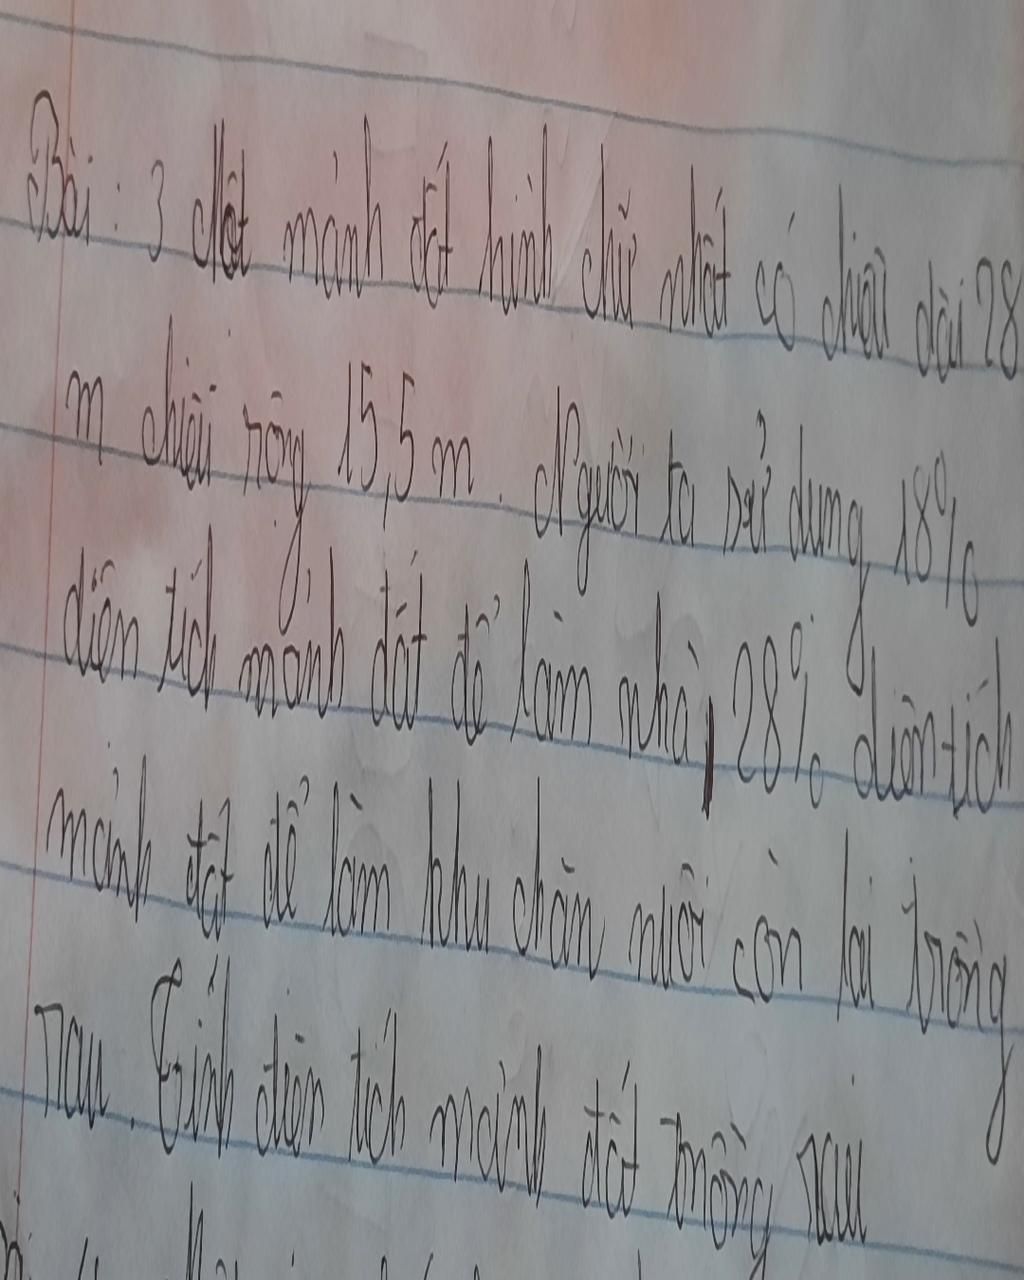 Bài : 3 Một mảnh đất hình chữ nhất có chiều dài 28
m chiều rộng 15,5 m. Người ta sử dung 18%
diện tích mảnh đất để làm nhà, 28% diện tích
mảnh đất để làm khu chăn nuôi còn lại trồng
rau. Tính diện tích mảnh đất trồng rau